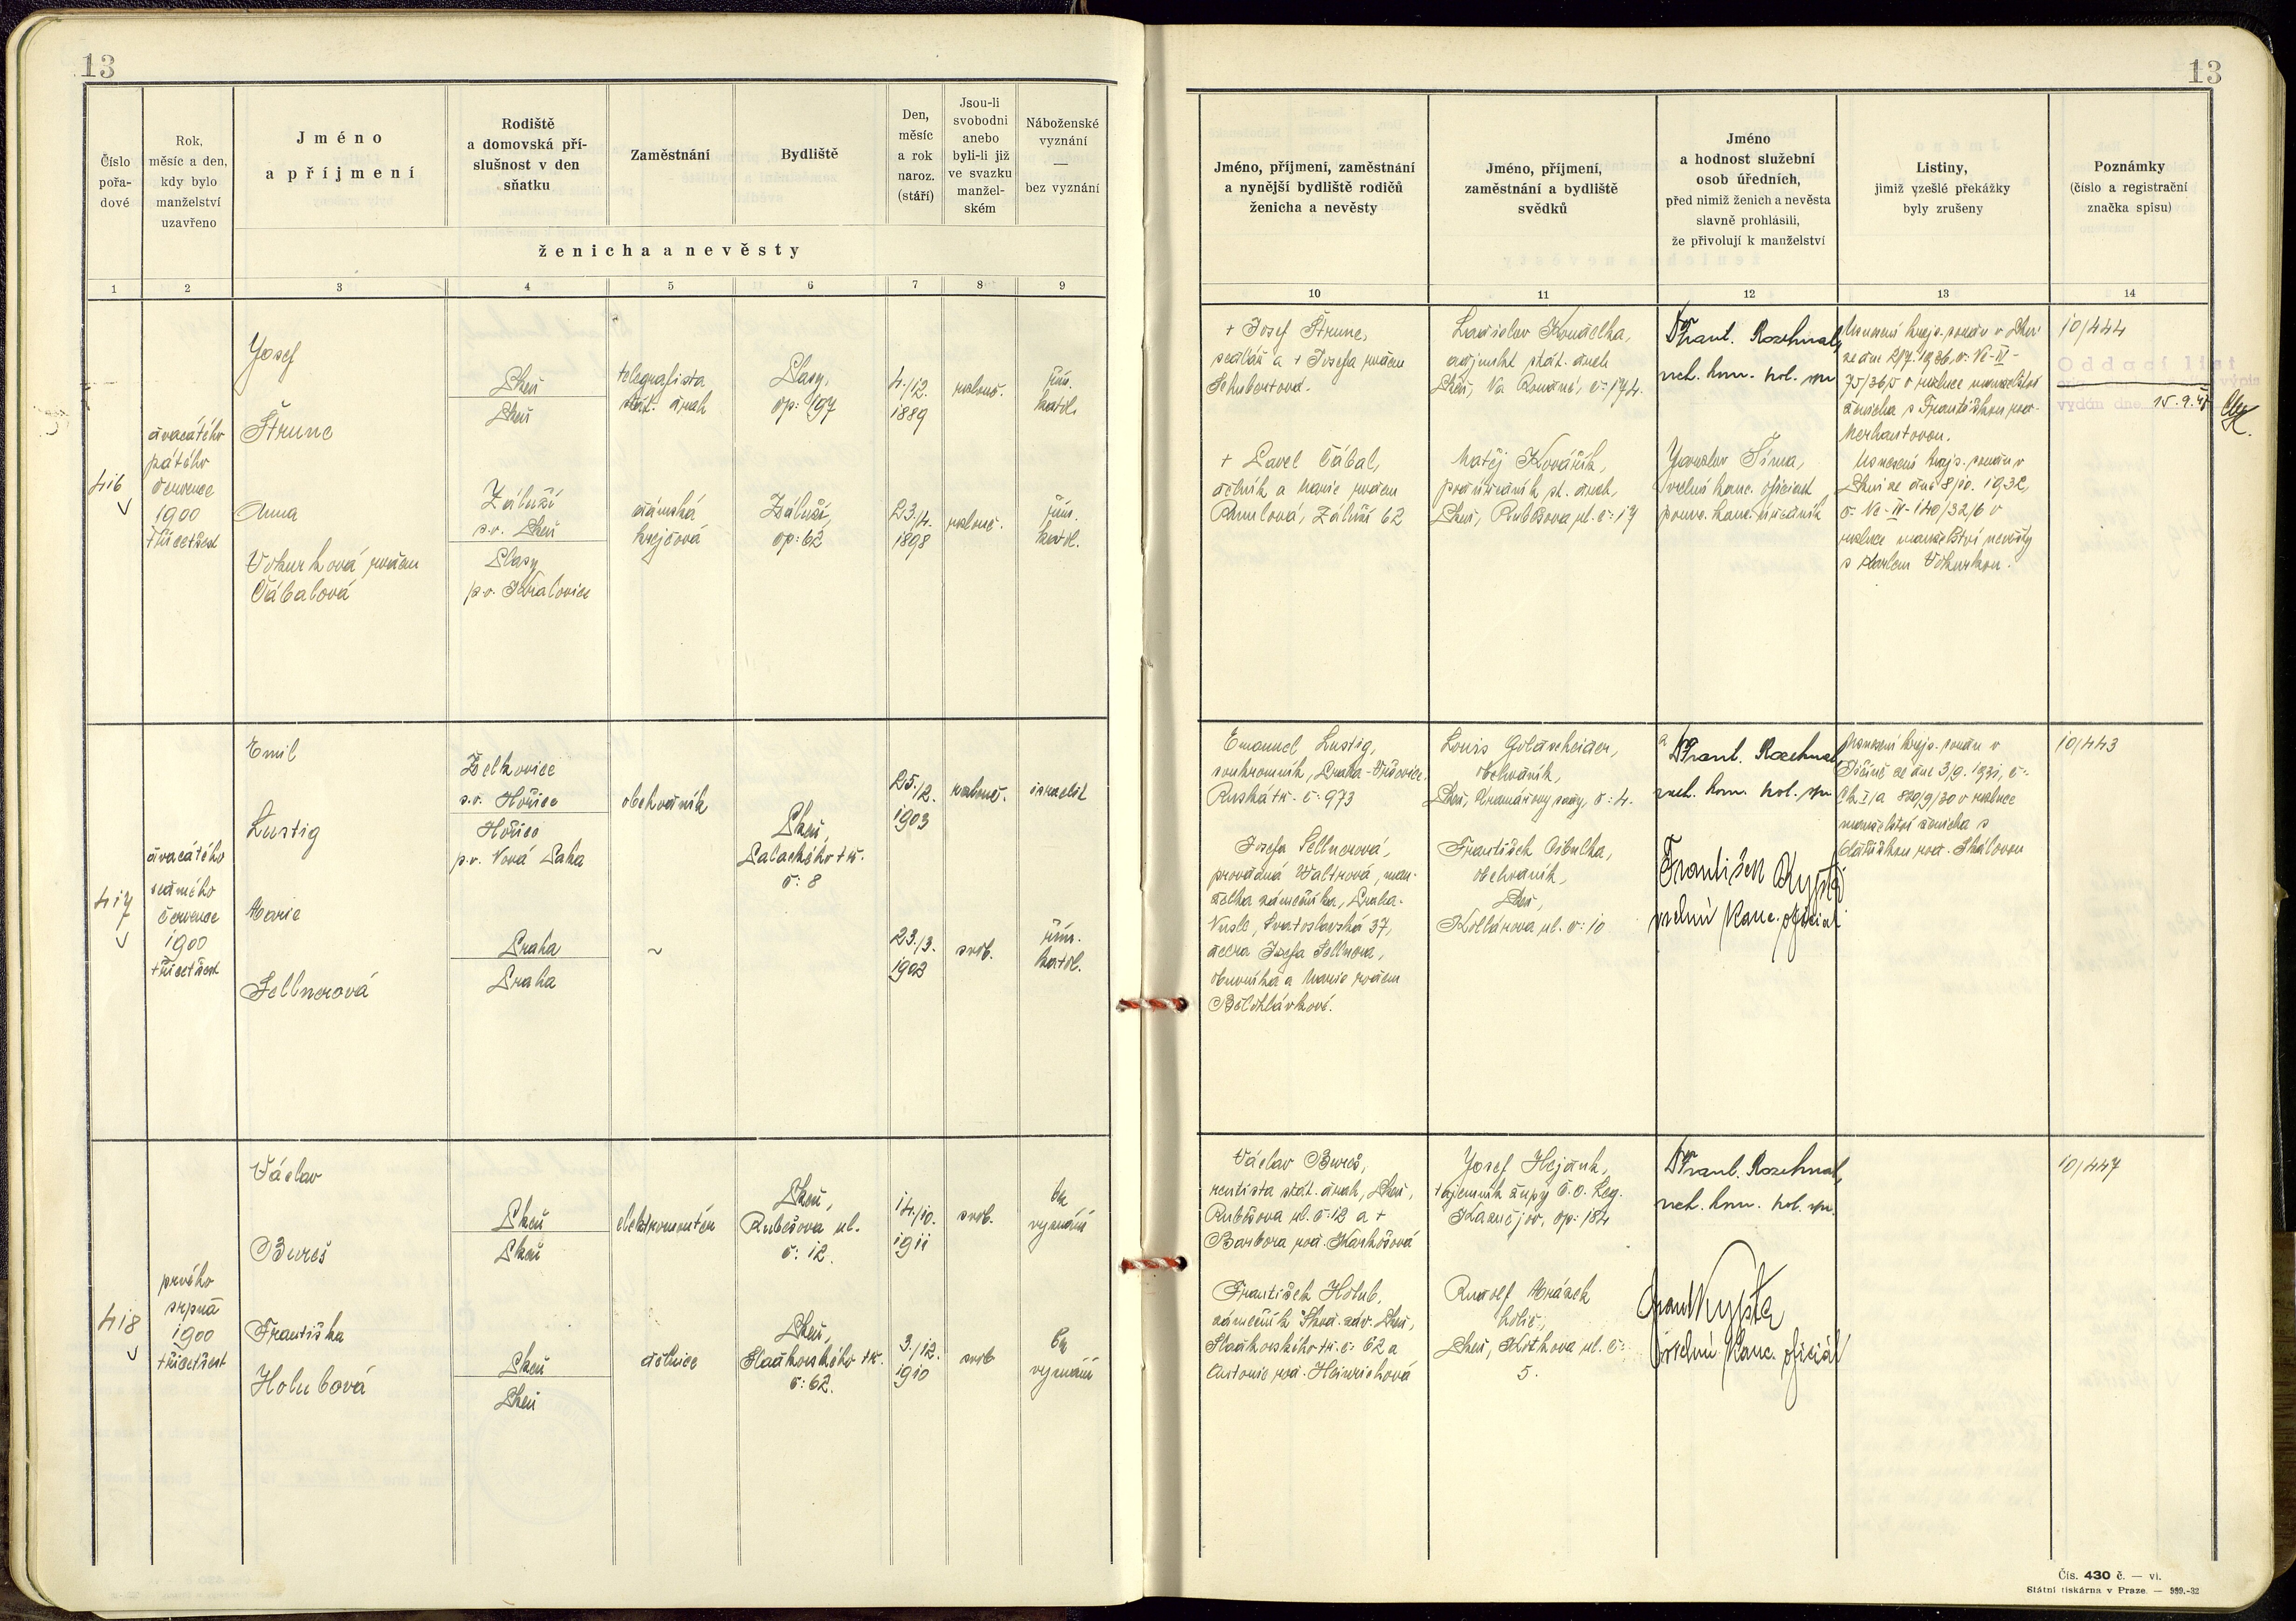 13
13
Číslo
pořa-
dové
Rok,
měsíc a den,
kdy bylo
manželství
uzavřeno
Jméno
a příjmení
Rodiště
a domovská pří-
slušnost v den
sňatku
Zaměstnání
Bydliště
Den,
měsíc
a rok
naroz.
(stáří)
Jsou-li
svobodni
anebo
byli-li již
ve svazku
manžel-
ském
Náboženské
vyznání
—
bez vyznání
ženicha a nevěsty
Jméno, příjmení, zaměstnání
a nynější bydliště rodičů
ženicha a nevěsty
Jméno, příjmení,
zaměstnání a bydliště
svědků
Jméno
a hodnost služební
osob úředních,
před nimiž ženich a nevěsta
slavně prohlásili,
že přivolují k manželství
Listiny,
jimiž vzešlé překážky
byly zrušeny
Poznámky
(číslo a registrační
značka spisu)
1 2 3 4 5 6 7 8 9 10 11 12 13 14
416
dvacátého
pátého
července
1900
třicetšest
Josef
Štrunc
Plzeň
Plzeň
telegrafista
stát. drah
Plasy,
čp: 197
4./12.
1889
rozlouč.
řím.
katol.
Anna
Vokurková rozen.
Čábalová
Záluží
s.o. Plzeň
Plasy
p.o. Kralovice
dámská
krejčová
Záluží,
čp: 62
23./4.
1898
rozlouč.
řím.
katol.
+ Josef Štrunc,
sedlář a + Josefa rozen.
Schubertová.
+ Pavel Čábal,
dělník a Marie rozen.
, Záluží 62
Ladislav Koudelka,
adjunkt stát. drah
Plzeň, Na Roudné, č: 174.
Matěj Kovářík,
podúředník st. drah,
Plzeň, Rubšova ul. č: 17
Dr Frant. Rozehnal,
rch. kom. pol. spr.
Jaroslav Šíma,
vrchní kanc. oficiant
pouv. kanc. úředník
Usnesení krajs. soudu v Plzni
ze dne 2/7. 1936, č: Nc-IV-
75/36/5 o rozluce manželství
ženicha s Františkou roz.
.
Usnesení krajs. soudu v
Plzni ze dne 8/10. 1932,
č: Nc-IV-140/32/6 o
rozluce manželství nevěsty
s Karlem Vokurkou.
10/444
Oddací list
výpis
vydán dne 15.9.45
417
dvacátého
sedmého
července
1900
třicetšest
Emil
Lustig
Želkovice
s.o. Hořice
Hořice
p.o. Nová Paka
obchodník
Plzeň,
Palackého tř.
č: 8
25./2.
1903
rozlouč.
israelit
Marie
Fellnerová
Praha
Praha
~
23./3.
1903
svob.
řím.
katol.
Emanuel Lustig,
soukromník, Praha-Vršovice,
Ruská tř. č: 973
Josefa Fellnerová,
provdaná Waltrová, man-
želka zámečníka, Praha-
Nusle, Svatoslavská 37,
dcera Josefa Fellnera,
obuvníka a Marie rozen.
Bělohlávkové.
Louis Goldscheider,
obchodník,
Plzeň, Kramářovy sady, č: 4.
František Cibulka,
obchodník,
Plzeň,
Kollárova ul. č: 10
Dr Frant. Rozehnal,
rch. kom. pol. spr.
František
vrchní kanc. oficiál
Usnesení krajs. soudu v
Jičíně ze dne 3/9. 1931, č:
Ck I/a 820/9/30 o rozluce
manželství ženicha s
roz. Skálovou
10/443
418
prvého
srpna
1900
třicetšest
Václav
Bureš
Plzeň
Plzeň
elektromontér
Plzeň,
Rubešova ul.
č: 12.
14./10.
1911
svob.
bez
vyznání
Františka
Holubová
Plzeň
Plzeň
dělnice
Plzeň,
Sladkovského tř.
č: 62.
3./12.
1910
svob
bez
vyznání
Václav Bureš,
rentista stát. drah, Plzeň,
Rubšova ul. č: 12 a +
Barbora roz. Karkošová
František Holub,
zámečník Škod. záv. Plzeň,
Sladkovského tř. č: 62 a
Antonie roz. Heinrichová
Josef Hejduk,
tajemník župy Č. O. Leg.
Kaznějov, čp: 184
Rudolf Mrázek
holič,
Plzeň, Krkova ul. č:
5.
Dr Frant. Rozehnal,
rch. kom. pol. spr.
vrchní kanc. oficiál
10/447
Čís. 430 č. — vi.
Státní tiskárna v Praze. — 999.-32